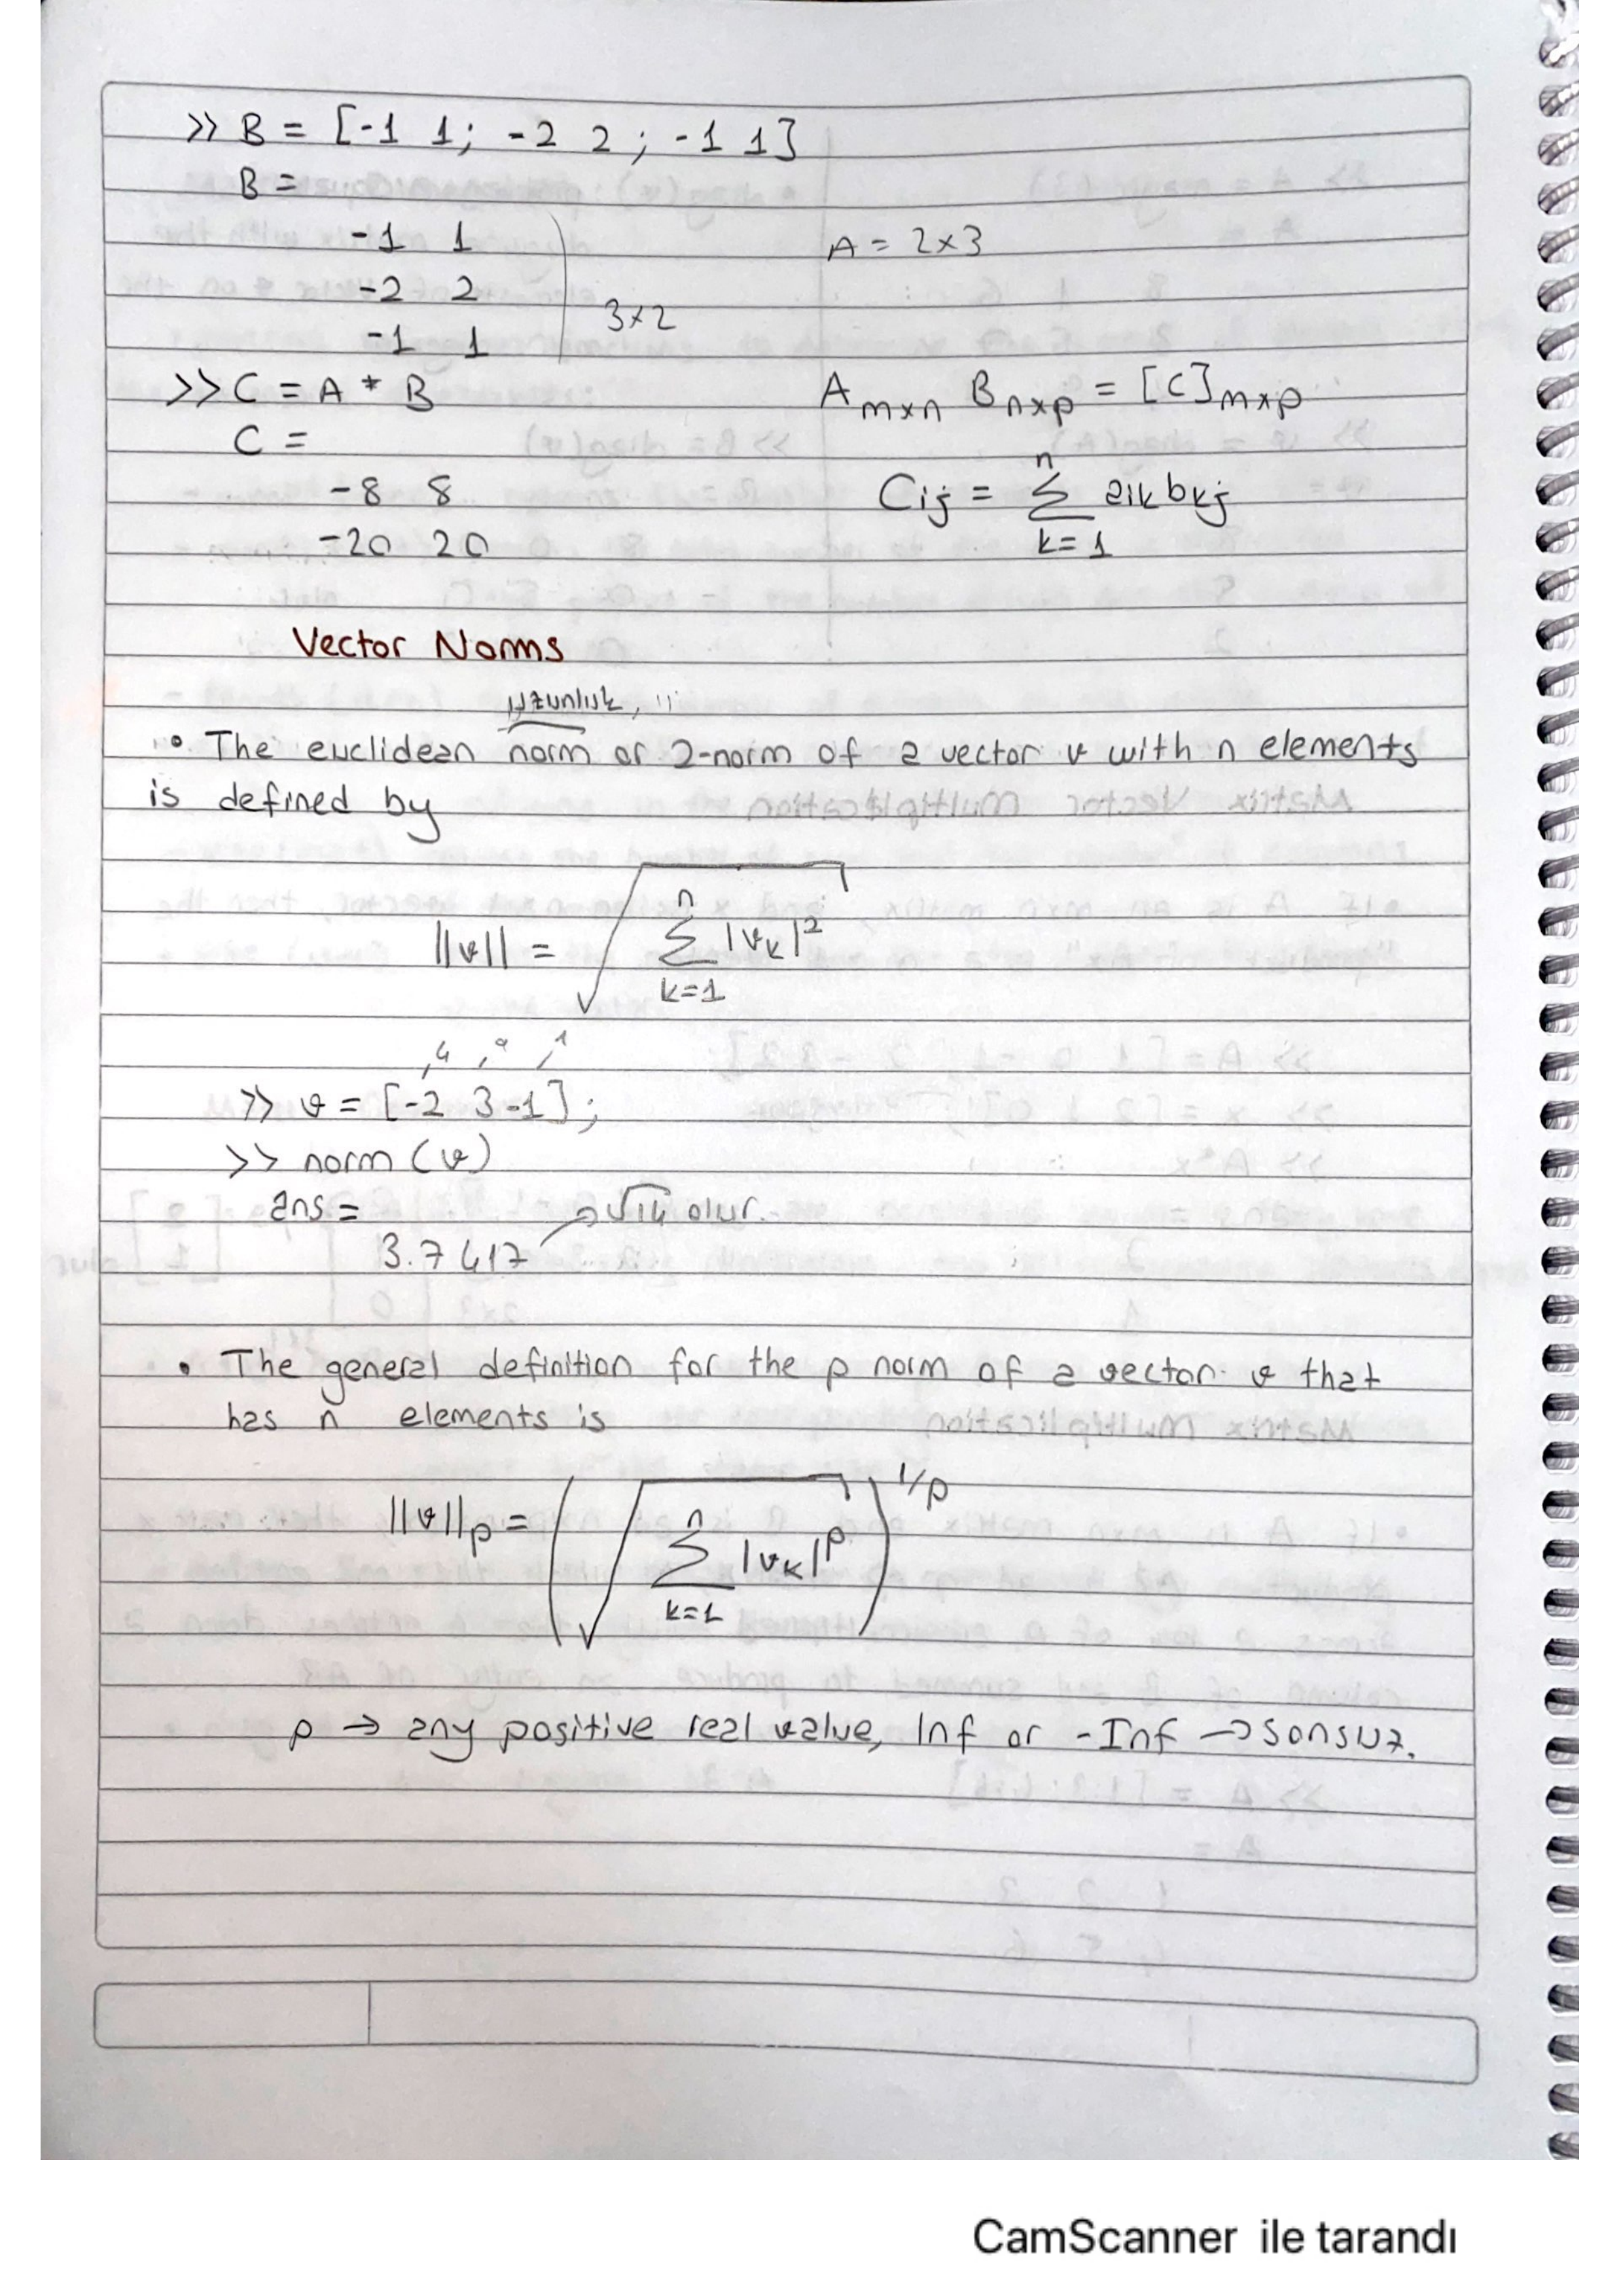 >> B = [-1 1; -2 2 ; -1 1]
B =
-1 1
-2 2
-1 1
3x2
A = 2x3
>> C = A * B
C =
-8 8
-20 20
A mxn B nxp = [C] mxp
Cij = n Σ k=1 aik bkj
Vector Norms
uzunluk,
• The euclidean norm or 2-norm of a vector v with n elements
is defined by
||v|| = √ n Σ k=1 |vk|²
4 9 1
>> v = [-2 3 -1];
>> norm (v)
ans =
3.7417 → √14 olur.
• The general definition for the p norm of a vector v that
has n elements is
||v||p = ( √ n Σ k=1 |vk|^p )^1/p
p → any positive real value, Inf or -Inf → sonsuz.
CamScanner ile tarandı